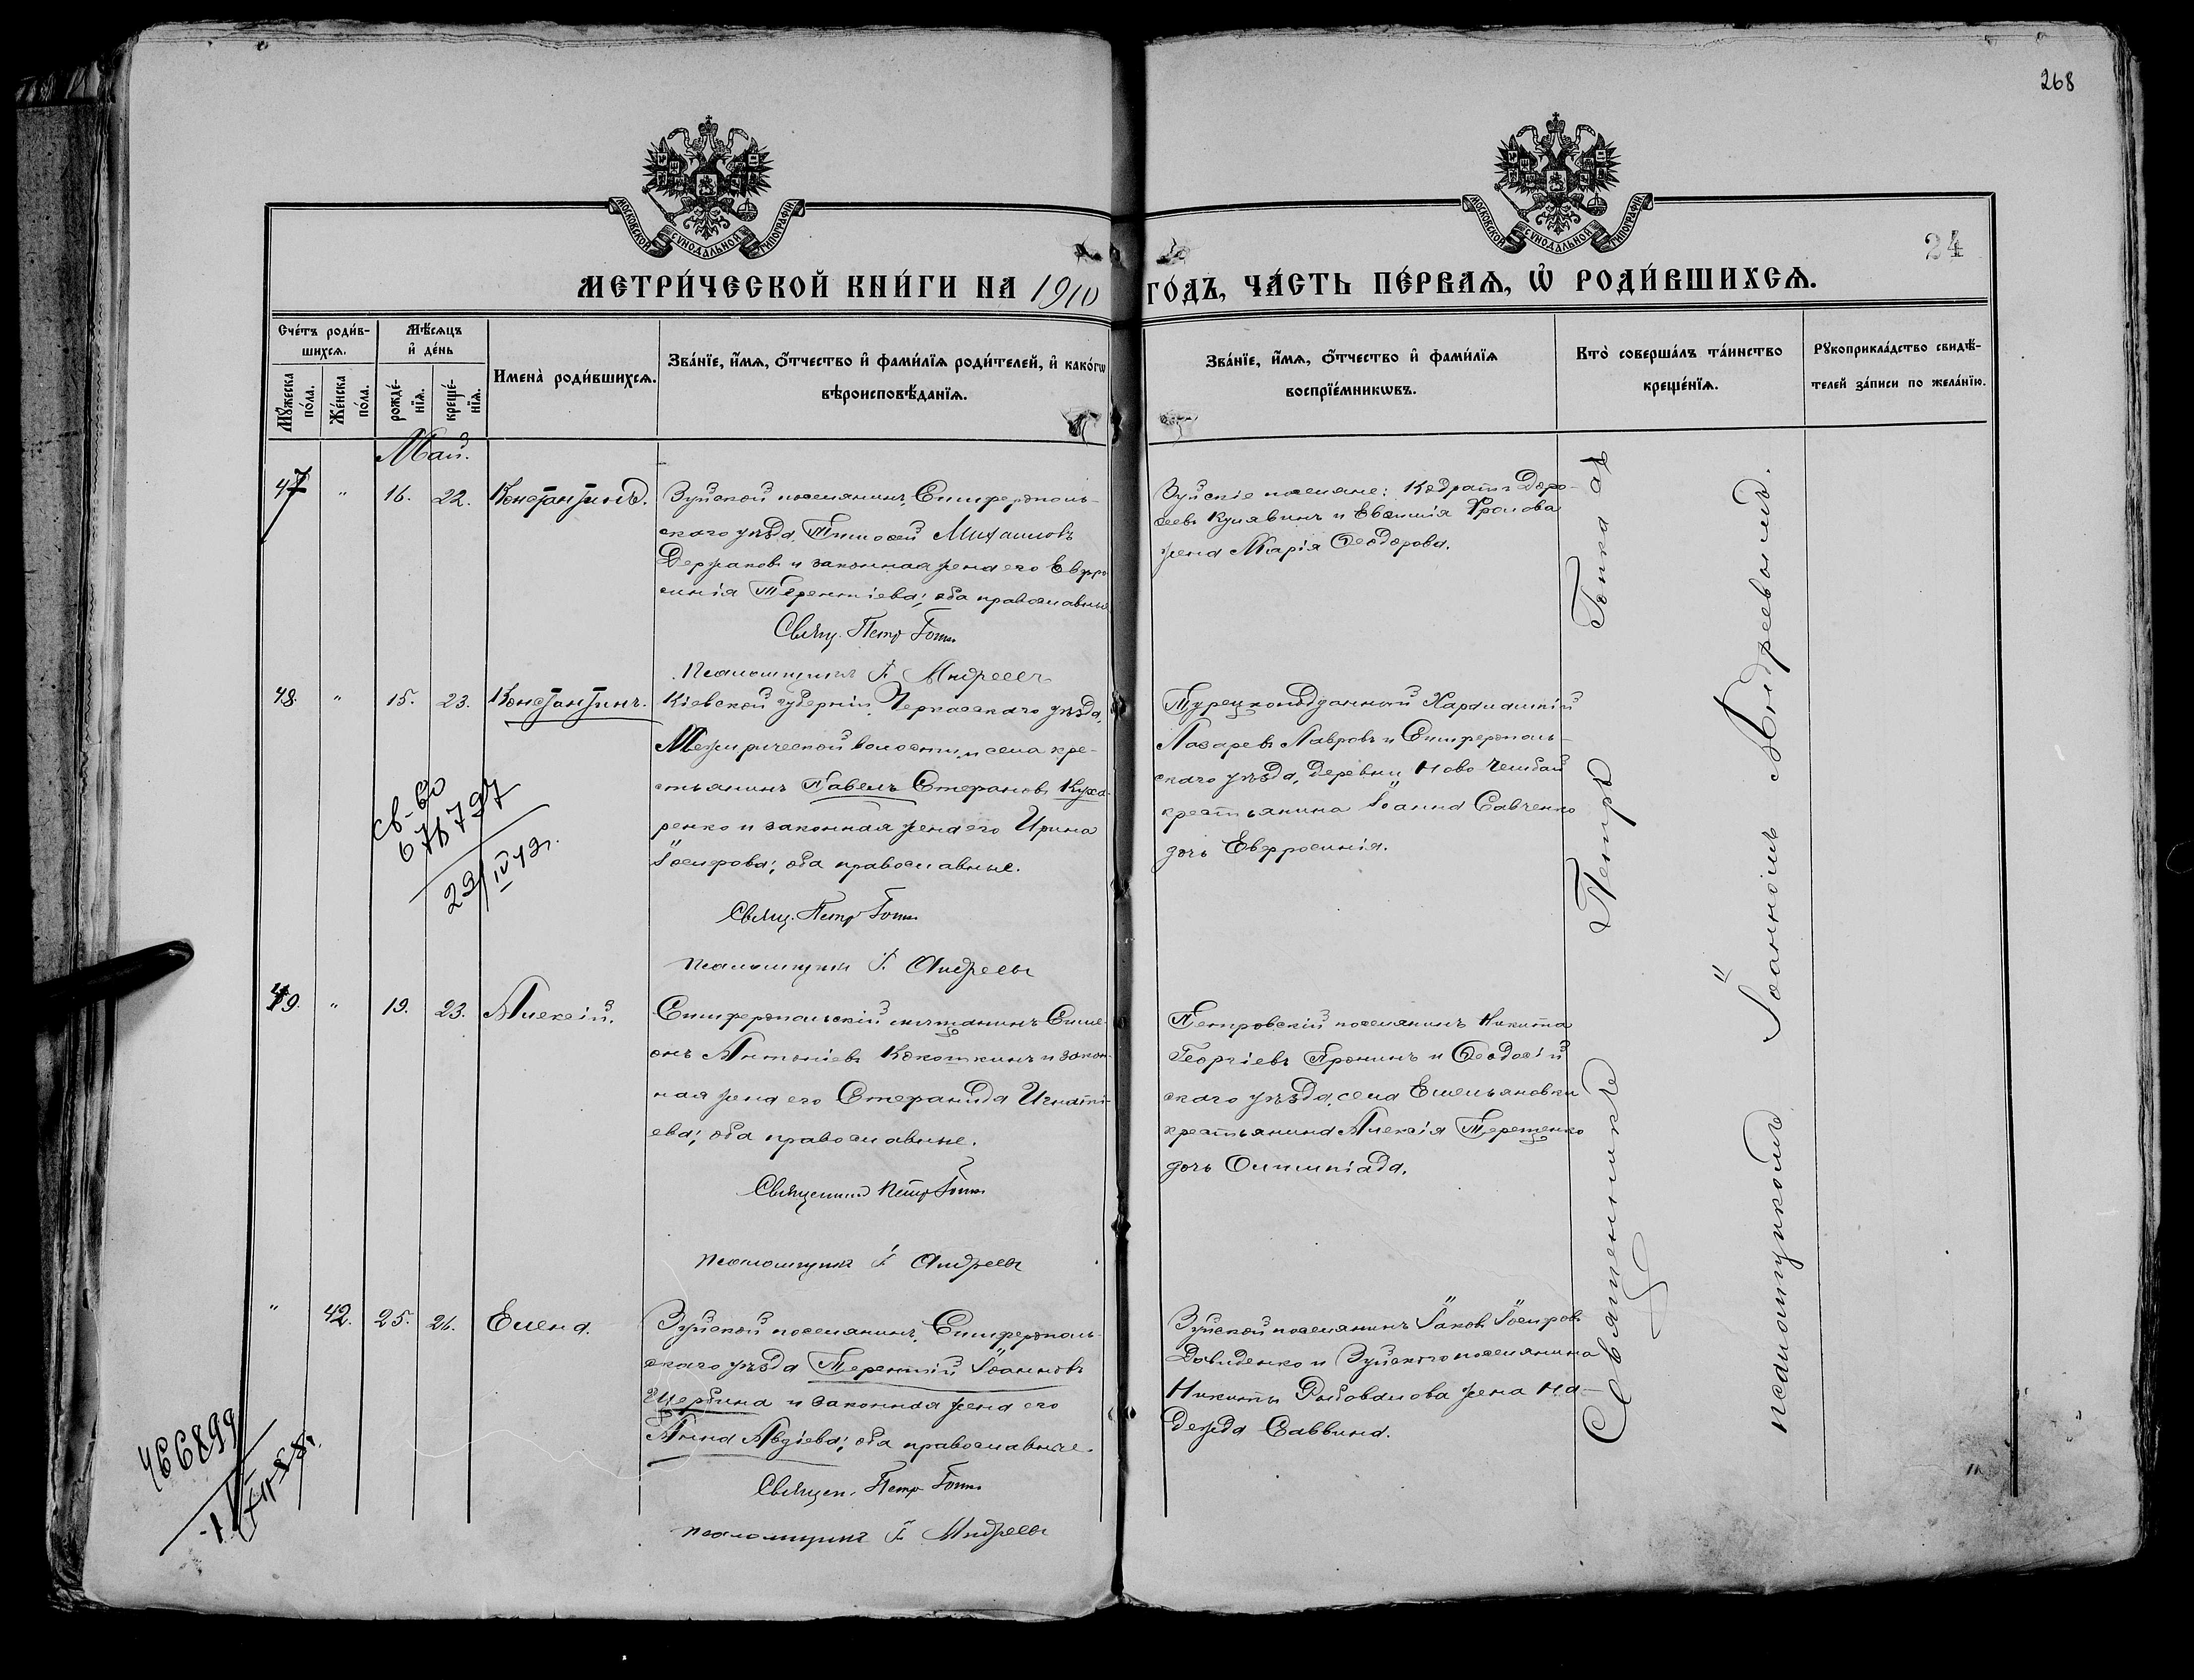 268
МОСКОВСКОЙ СѴНОДАЛЬНОЙ ТИПОГРАФІИ
МОСКОВСКОЙ СѴНОДАЛЬНОЙ ТИПОГРАФІИ
24
МЕТРИ́ЧЕСКОЙ КНИ́ГИ НА 1910 ГО́ДЪ, ЧА́СТЬ ПЕ́РВАѦ, Ѡ҆ РОДИ́ВШИХСѦ.
Сче́тъ роди́в-
шихсѧ.
Мꙋ́жеска по́ла.
Же́нска по́ла.
Мѣ́сѧцъ и҆ де́нь
рожде́-нїѧ.
креще́-нїѧ.
Имена̀ роди́вшихсѧ.
Зва́нїе, и҆́мѧ, ѻ҆́тчество и҆ фами́лїѧ роди́телей, и҆ како́гѡ
вѣроисповѣ́данїѧ.
Зва́нїе, и҆́мѧ, ѻ҆́тчество и҆ фами́лїѧ
воспрїе́мникѡвъ.
Кто̀ соверша́лъ та́инство
креще́нїѧ.
Рꙋкоприкла́дство свидѣ́-
телей за́писи по жела́нїю.
Май.
47 " 16. 22. Константинъ.
Зуйской поселянинъ, Симферополь-
скаго уѣзда, Тимофей Михаиловъ
Держаковъ и законная жена его Евфро
синія Терентіева; оба православные
Свящ. Петр Гопк.
Псаломщикъ І. Андреевъ
Зуйскіе поселяне: Кодратъ Доро-
феевъ Кулявинъ и Евѳимія Фролова
жена Марія Ѳеодорова.
48. " 15. 23. Константинъ.
Кіевской губерніи, Черкасскаго уѣзда,
Межирической волости и села кре-
стьянинъ Павелъ Стефановъ Куха-
ренко и законная жена его Ирина
Іосифова; оба православные.
Свящ. Петр Гопк.
псаломщикъ І. Андреевъ
св-во
29/IV 42г.
Турецкоподданный Харалампій
Лазаревъ Лавровъ и Симферополь-
скаго уѣзда, деревни Ново Чембай
крестьянина Іоанна Савченко
дочь Евфросинія.
49. " 19. 23. Алексій.
Симферопольскій мѣщанинъ Симе-
онъ Антоніевъ Кокоткинъ и закон-
ная жена его Стефанида Игнаті-
ева; оба православные.
Священник Петр Гопк.
псаломщикъ І. Андреевъ
Петровскій поселянинъ Никита
Георгіевъ Пронинъ и Ѳеодосій
скаго уѣзда, села Емельяновки
крестьянина Алексія Терещенко
дочь Олимпіада.
" 42. 25. 26. Елена.
Зуйской поселянинъ, Симферополь-
скаго уѣзда Терентій Іоанновъ
Щербина и законная жена его
Анна Авдіева; оба православные.
Священ. Петр Гопк.
псаломщикъ І. Андреевъ
466899
Зуйской поселянинъ Іаковъ Іосифовъ
Давиденко и Зуйскаго поселянина
Никиты Рыбовалова жена На-
дежда Саввина.
Священникъ Петръ Гопкадзъ
псаломщикомъ Іоанномъ Андреевымъ.